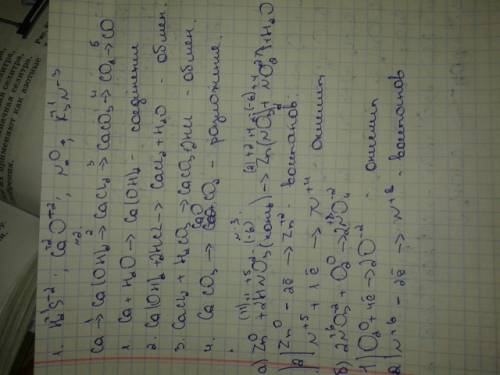 1. H₂⁺¹S⁻²; Ca⁺²O⁻²; N₂⁰; K₃⁺¹N⁻³
№2.
Ca →¹ Ca(OH)₂ →² CaCl₂ →³ CaCO₃ →⁴ CO₂ →⁵ CO
1. Ca + H₂O → Ca(OH)₂ - соединения
2. Ca(OH)₂ + 2HCl → CaCl₂ + H₂O - обмен.
3. CaCl₂ + H₂CO₃ → CaCO₃ + 2HCl - обмен.
4. CaCO₃ → CaO + CO₂ - разложение.
а) Zn⁰ + 2HNO₃ (конц) → Zn(NO₃)₂ + NO₂ + H₂O
Zn⁰ - 2ē → Zn⁺² восстанов.
2| N⁺⁵ + 1ē → N⁺⁴ окислит
б) 2NO₂ + O₂⁰ → 2NO₄
1| O₂⁰ + 4ē → 2O⁻² окислит
2| N⁺⁶ - 2ē → N⁺⁸ - восстанов